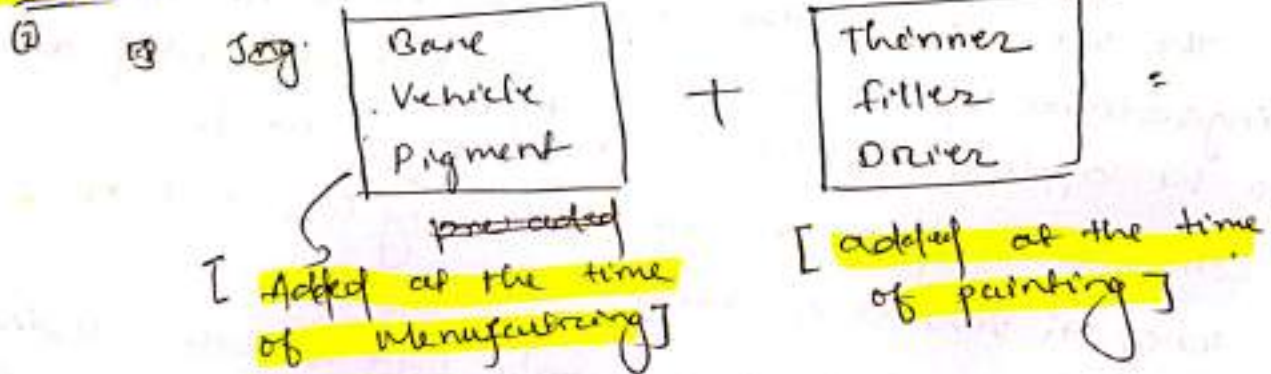 ② Ing. Base
Vehicle
Pigment
+
Thinner
filler
Drier
=
pre-added
[ Added at the time
of Menufacturing]
[ added at the time
of painting ]